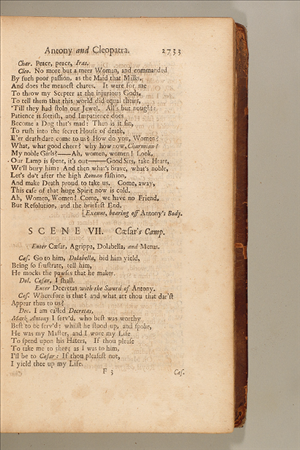 Antony and Cleopatra. 2733
Char. Peace, peace, Iras.
Cleo. No more but a meer Woman, and commanded
By such poor passion, as the Maid that Milks,
And does the meanest chares. It were for me
To throw my Scepter at the injurious Gods,
To tell them that this world did equal theirs,
'Till they had stoln our Jewel. All's but nought:
Patience is sottish, and Impatience does
Become a Dog that's mad: Then is it sin,
To rush into the secret House of death,
E'er death dare come to us? How do you, Women?
What, what good cheer? why how now, Charmian?
My noble Girls?——Ah, women, women! Look,
Our Lamp is spent, it's out——Good Sirs, take Heart,
We'll bury him: And then what's brave, what's noble,
Let's do't after the high Roman fashion,
And make Death proud to take us. Come, away,
This case of that huge Spirit now is cold.
Ah, Women, Women! Come, we have no Friend,
But Resolution, and the briefest End.
[Exeunt, bearing off Antony's Body.
SCENE VII. Cæsar's Camp.
Enter Cæsar, Agrippa, Dolabella, and Menas.
Cæs. Go to him, Dolabella, bid him yield,
Being so frustrate, tell him,
He mocks the pawses that he makes.
Dol. Cæsar, I shall.
Enter Decretas with the Sword of Antony.
Cæs. Wherefore is that? and what art thou that dar'st
Appear thus to us?
Dec. I am called Decretas,
Mark Antony I serv'd, who best was worthy
Best to be serv'd: whilst he stood up, and spoke,
He was my Master, and I wore my Life
To spend upon his Haters. If thou please
To take me to thee, as I was to him,
I'll be to Cæsar: If thou pleasest not,
I yield thee up my Life.
F 3 Cæs.